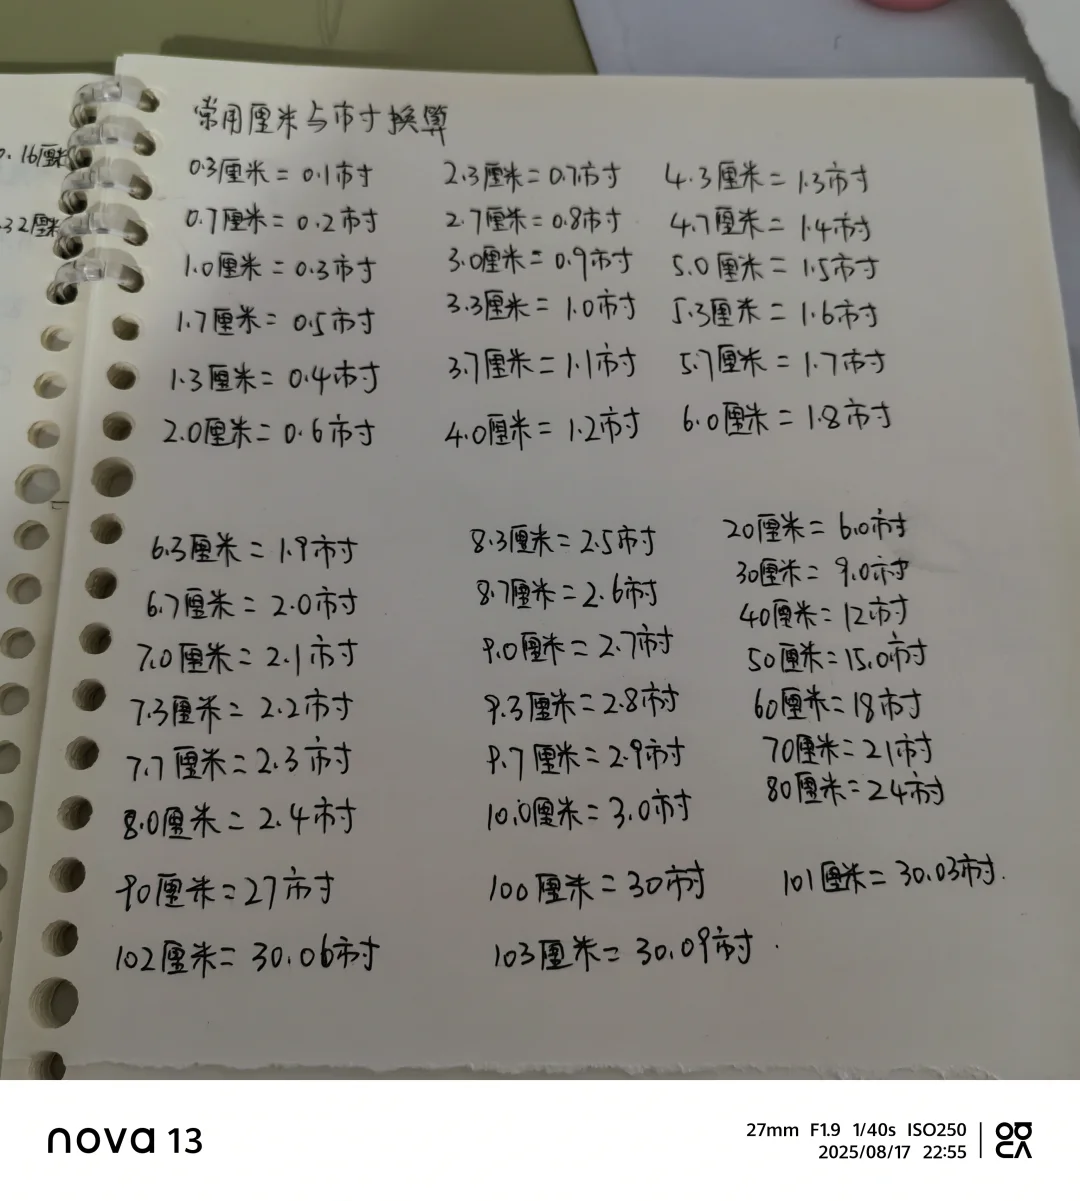 常用厘米与市寸换算
0.16厘米
.32厘米
0.3厘米=0.1市寸 2.3厘米=0.7市寸 4.3厘米=1.3市寸
0.7厘米=0.2市寸 2.7厘米=0.8市寸 4.7厘米=1.4市寸
1.0厘米=0.3市寸 3.0厘米=0.9市寸 5.0厘米=1.5市寸
1.7厘米=0.5市寸 3.3厘米=1.0市寸 5.3厘米=1.6市寸
1.3厘米=0.4市寸 3.7厘米=1.1市寸 5.7厘米=1.7市寸
2.0厘米=0.6市寸 4.0厘米=1.2市寸 6.0厘米=1.8市寸
6.3厘米=1.9市寸 8.3厘米=2.5市寸 20厘米=6.0市寸
6.7厘米=2.0市寸 8.7厘米=2.6市寸 30厘米=9.0市寸
7.0厘米=2.1市寸 9.0厘米=2.7市寸 40厘米=12市寸
7.3厘米=2.2市寸 9.3厘米=2.8市寸 50厘米=15.0市寸
7.7厘米=2.3市寸 9.7厘米=2.9市寸 60厘米=18市寸
8.0厘米=2.4市寸 10.0厘米=3.0市寸 70厘米=21市寸
80厘米=24市寸
90厘米=27市寸 100厘米=30市寸 101厘米=30.03市寸.
102厘米=30.06市寸 103厘米=30.09市寸.
nova 13
27mm F1.9 1/40s ISO250
2025/08/17 22:55